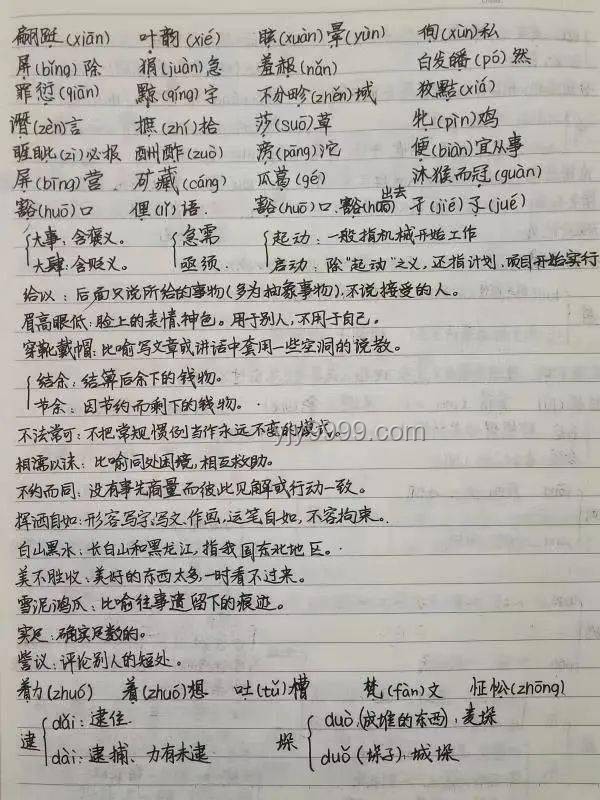 翩跹(xiān) 叶韵(xié) 眩(xuàn)晕(yùn) 徇(xùn)私
屏(bǐng)除 狷(juàn)急 羞赧(nǎn) 白发皤(pó)然
罪愆(qiān) 黥(qíng)字 不分畛(zhěn)域 狡黠(xiá)
谮(zèn)言 摭(zhí)拾 莎(suō)草 牝(pìn)鸡
睚眦(zì)必报 酬酢(zuò) 滂(pāng)沱 便(biàn)宜从事
屏(bīng)营 矿藏(cáng) 瓜葛(gé) 沐猴而冠(guàn)
豁(huō)口 俚(lǐ)语 豁(huō)口、豁(huō)出去 孑(jié)孓(jué)
大事:含褒义。 急需 起动:一般指机械开始工作
大肆:含贬义。 亟须 启动:除"起动"之义,还指计划、项目开始实行
给以:后面只说所给的事物(多为抽象事物),不说接受的人。
眉高眼低:脸上的表情、神色。用于别人,不用于自己。
穿靴戴帽:比喻写文章或讲话中套用一些空洞的说教。
结余:结算后余下的钱物。
节余:因节约而剩下的钱物。
不法常可:不把常规惯例当作永远不变的模式。
相濡以沫:比喻同处困境,相互救助。
不约而同:没有事先商量而彼此见解或行动一致。
挥洒自如:形容写字、写文、作画,运笔自如,不容拘束。
白山黑水:长白山和黑龙江,指我国东北地区。
美不胜收:美好的东西太多,一时看不过来。
雪泥鸿爪:比喻往事遗留下的痕迹。
实足:确实足数的。
訾议:评论别人的短处。
着力(zhuó) 着(zhuó)想 吐(tǔ)槽 梵(fàn)文 怔忪(zhōng)
逮 dǎi:逮住 垛 duò(成堆的东西),麦垛
dài:逮捕、力有未逮 duǒ(垛子):城垛
yjy9999.com